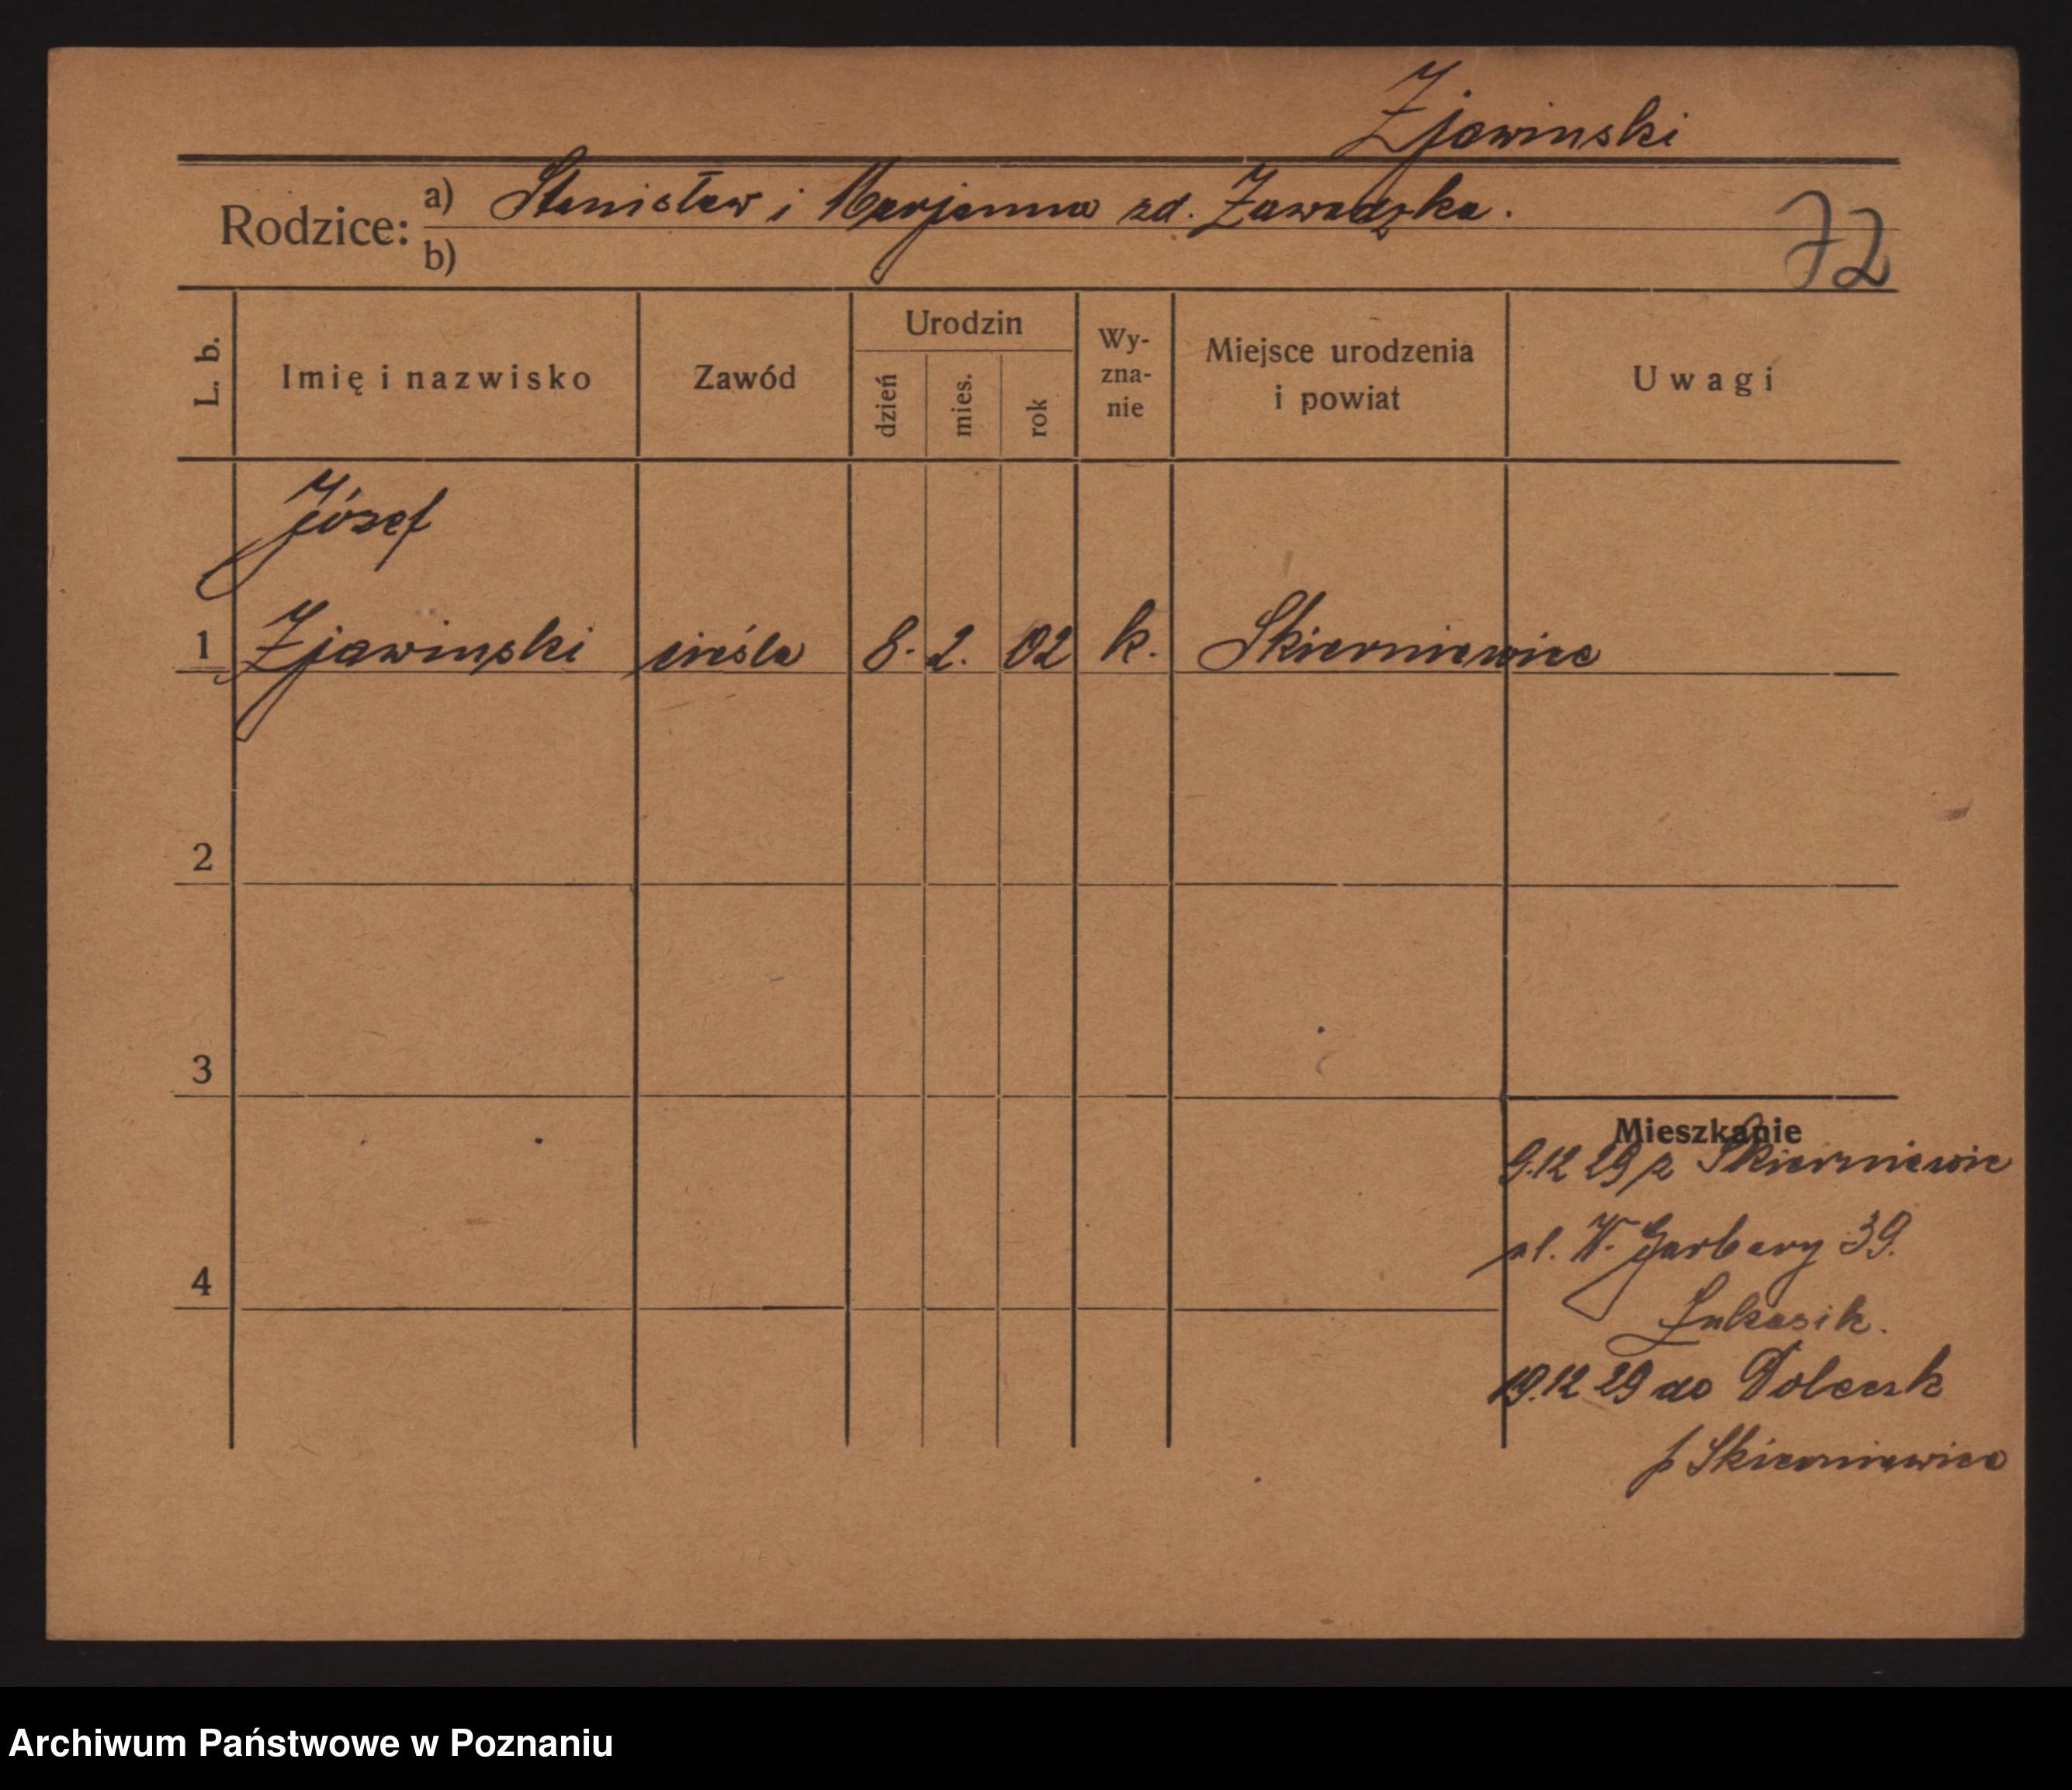 Zjawinski
Rodzice: a) Stanisław i Marjanna zd. Zawadzka.
b)
72
L. b. Imię i nazwisko Zawód Urodzin dzień mies. rok Wy-zna-nie Miejsce urodzenia i powiat Uwagi
Józef
1 Zjawinski cieśla 8. 2. 02 k. Skierniewice
2
3
Mieszkanie
9.12 29 z Skierniewic
ul. W. Garbary 39.
4
Łukasik.
19.12 29 do
p Skierniewice
Archiwum Państwowe w Poznaniu